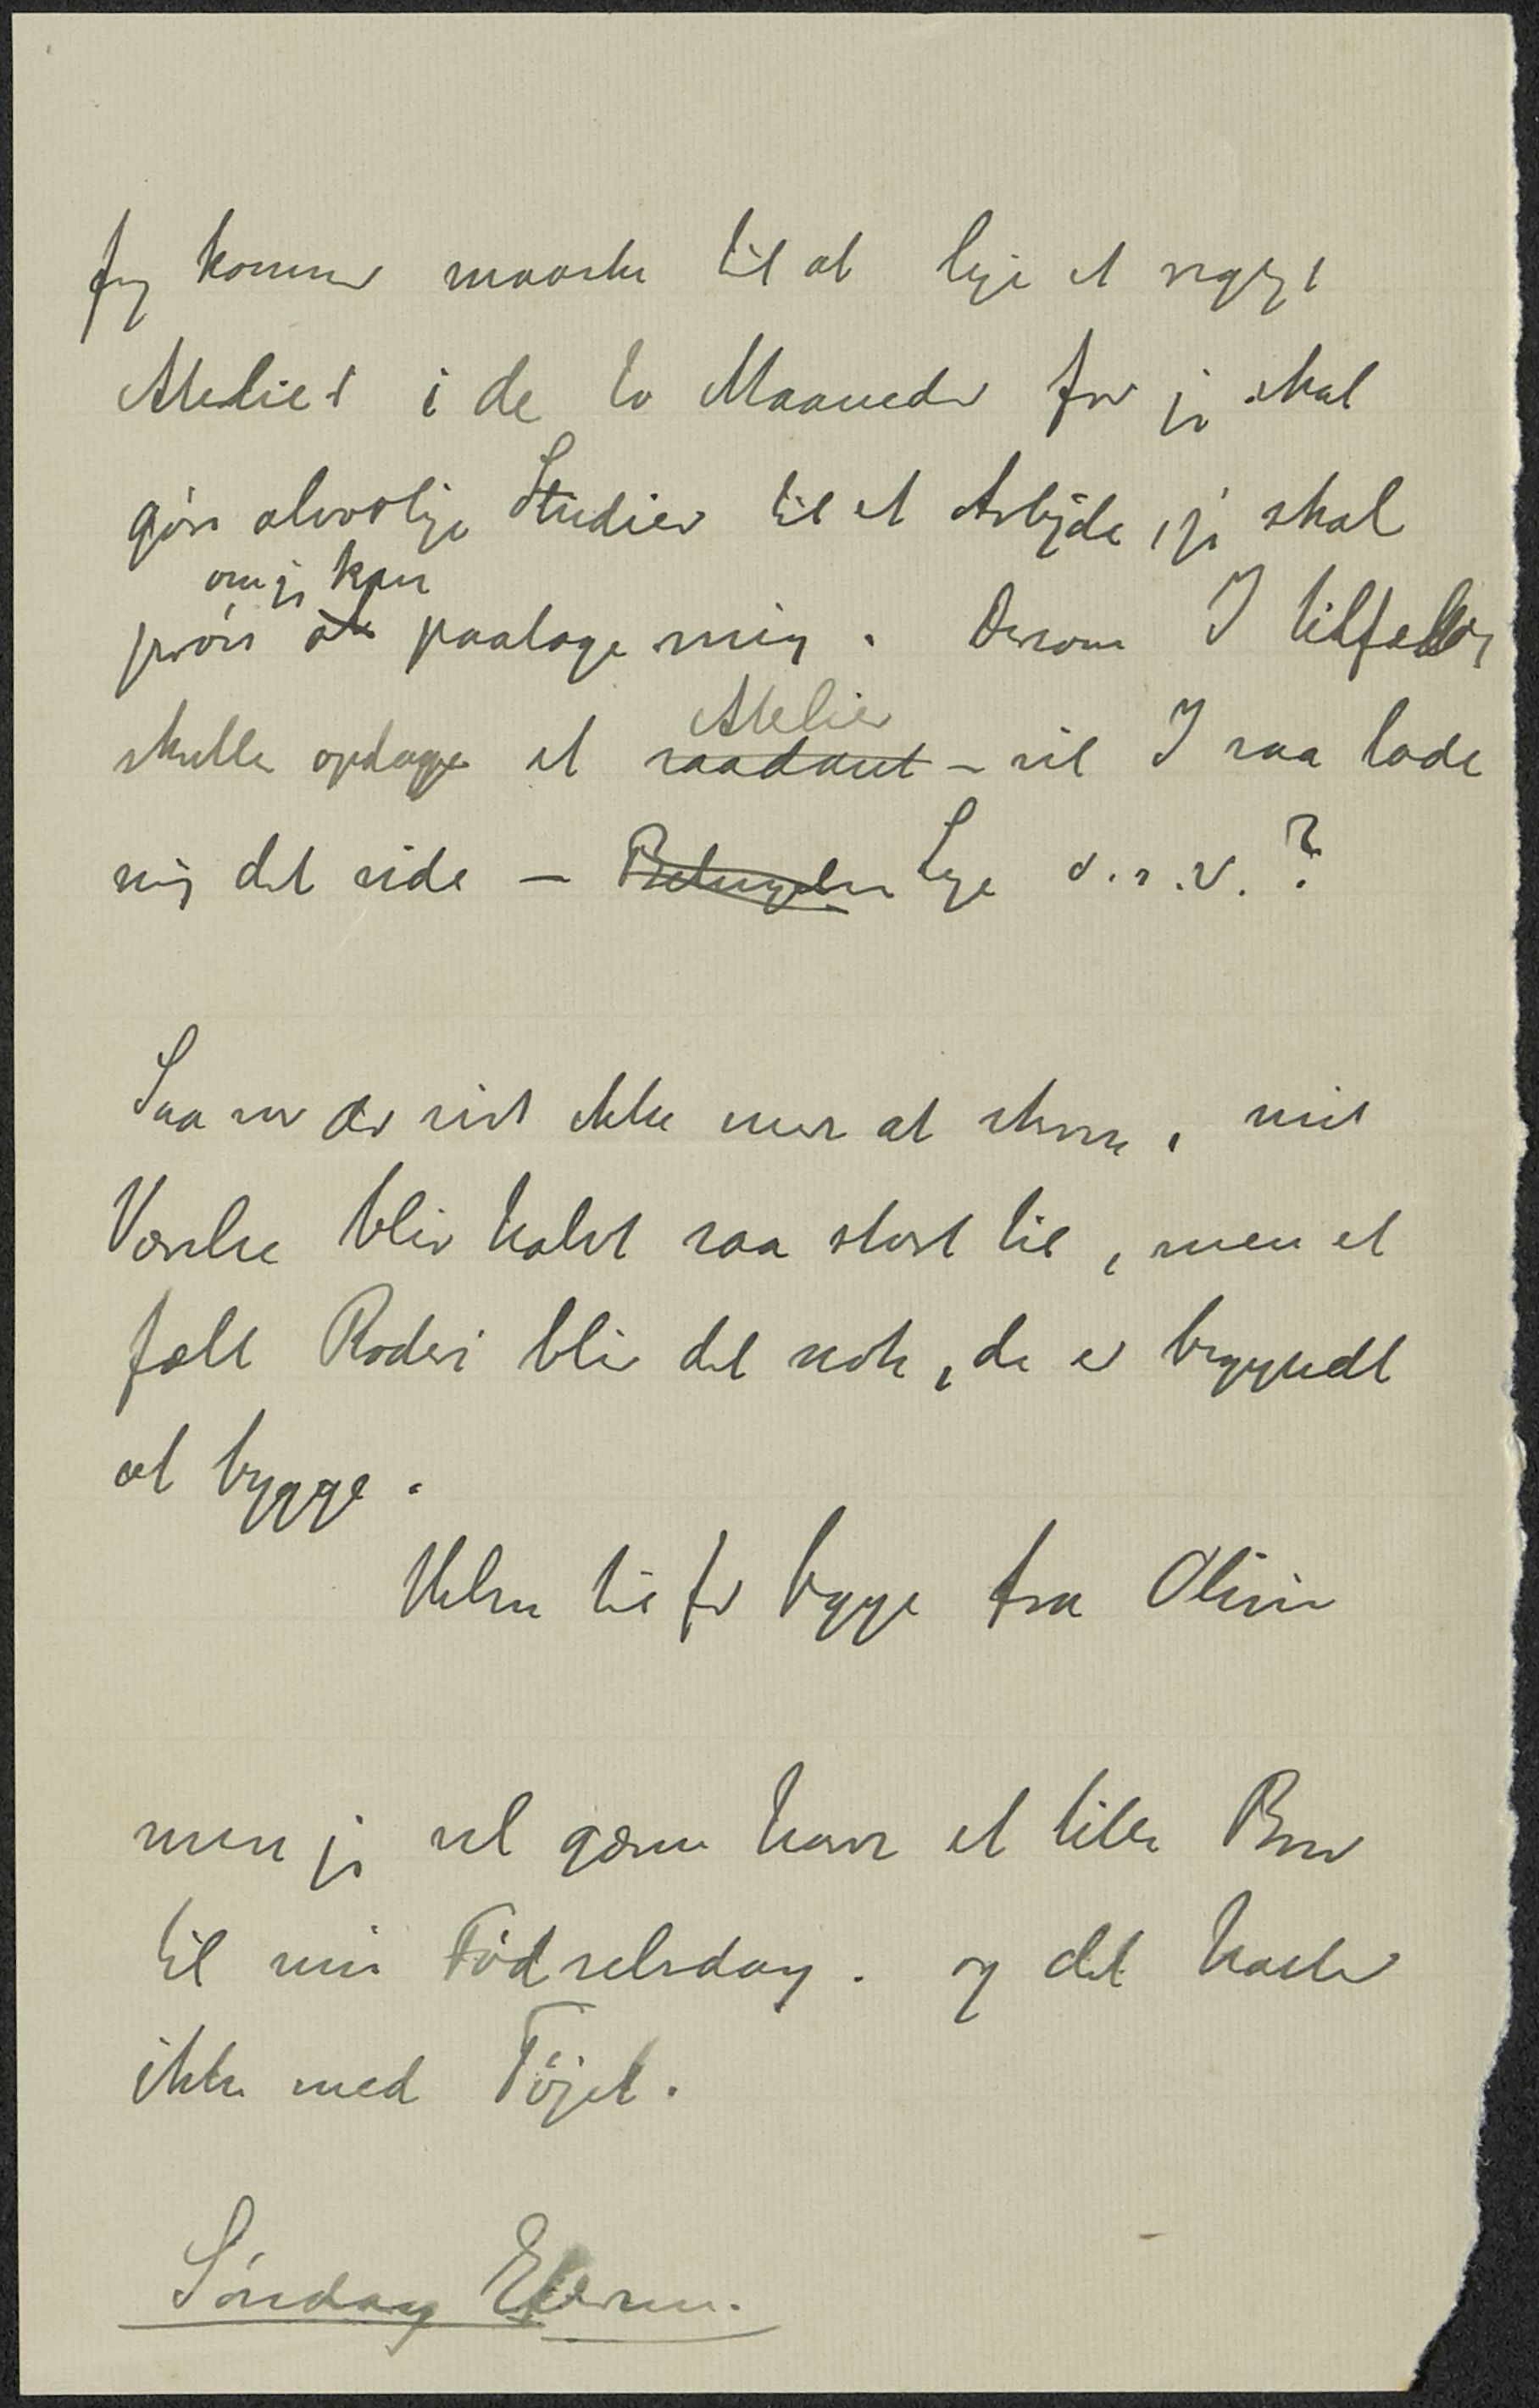 Jeg kommer maaske til at leje et rigtigt
Atelier i de to Maaneder for jeg skal
göre alvorlige Studier til et Arbejde, jeg skal
om jeg kan
pröve at paatage mig. Dersom I tilfældig
Atelier
skulle opdage et saadant – vil I saa lade
mig det vide – Leje o.s.v.?
Saa er der vist ikke mere at skrive, mit
Værelse bliver halvt saa stort til, men et
fælt Roderi bliver det nok, de er begyndt
at bygge.
Hilsen til for begge fra Olivia
men jeg vil gærne have et lille Brev
til min Födselsdag. og det haster
ikke med Töjet.
Söndag Efterm.